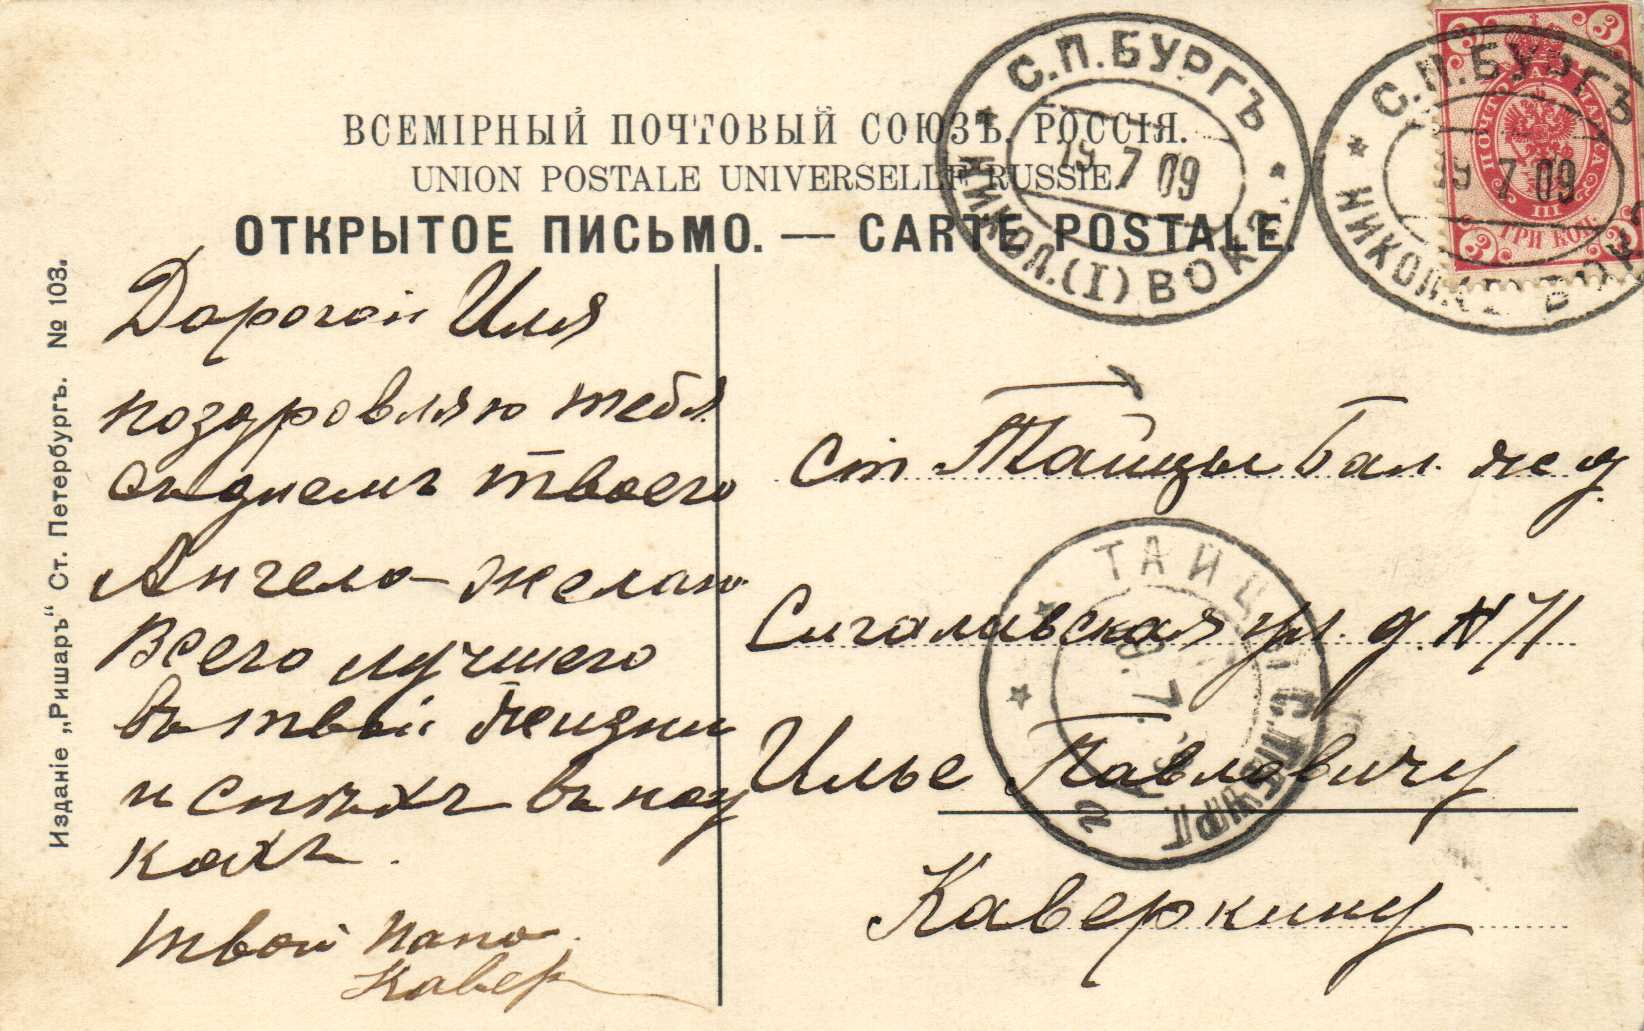 ВСЕМІРНЫЙ ПОЧТОВЫЙ СОЮЗЪ. РОССІЯ.
UNION POSTALE UNIVERSELLE RUSSIE.
ОТКРЫТОЕ ПИСЬМО. — CARTE POSTALE.
С.П.БУРГЪ
19 7 09
НИКОЛ.(I) ВОКЗ.
С.П.БУРГЪ
19 7 09
ПОЧТОВАЯ МАРКА
III
ТРИ КОП
3 3 3 3
Изданіе „Ришаръ“ Ст. Петербургъ. № 103.
Дорогой Илья
поздровляю тебя
съ днемъ твоего
Ангела желаю
Всего лучшего
въ твоей жизни
и спѣхъ въ нау
кахъ.
твой папа
Кавер
ст Тайцы Бал. же д.
ул. д. № 71
Илье Павловичу
Каверкину
ТАЙЦЫ С.ПЕТЕРБУРГ.